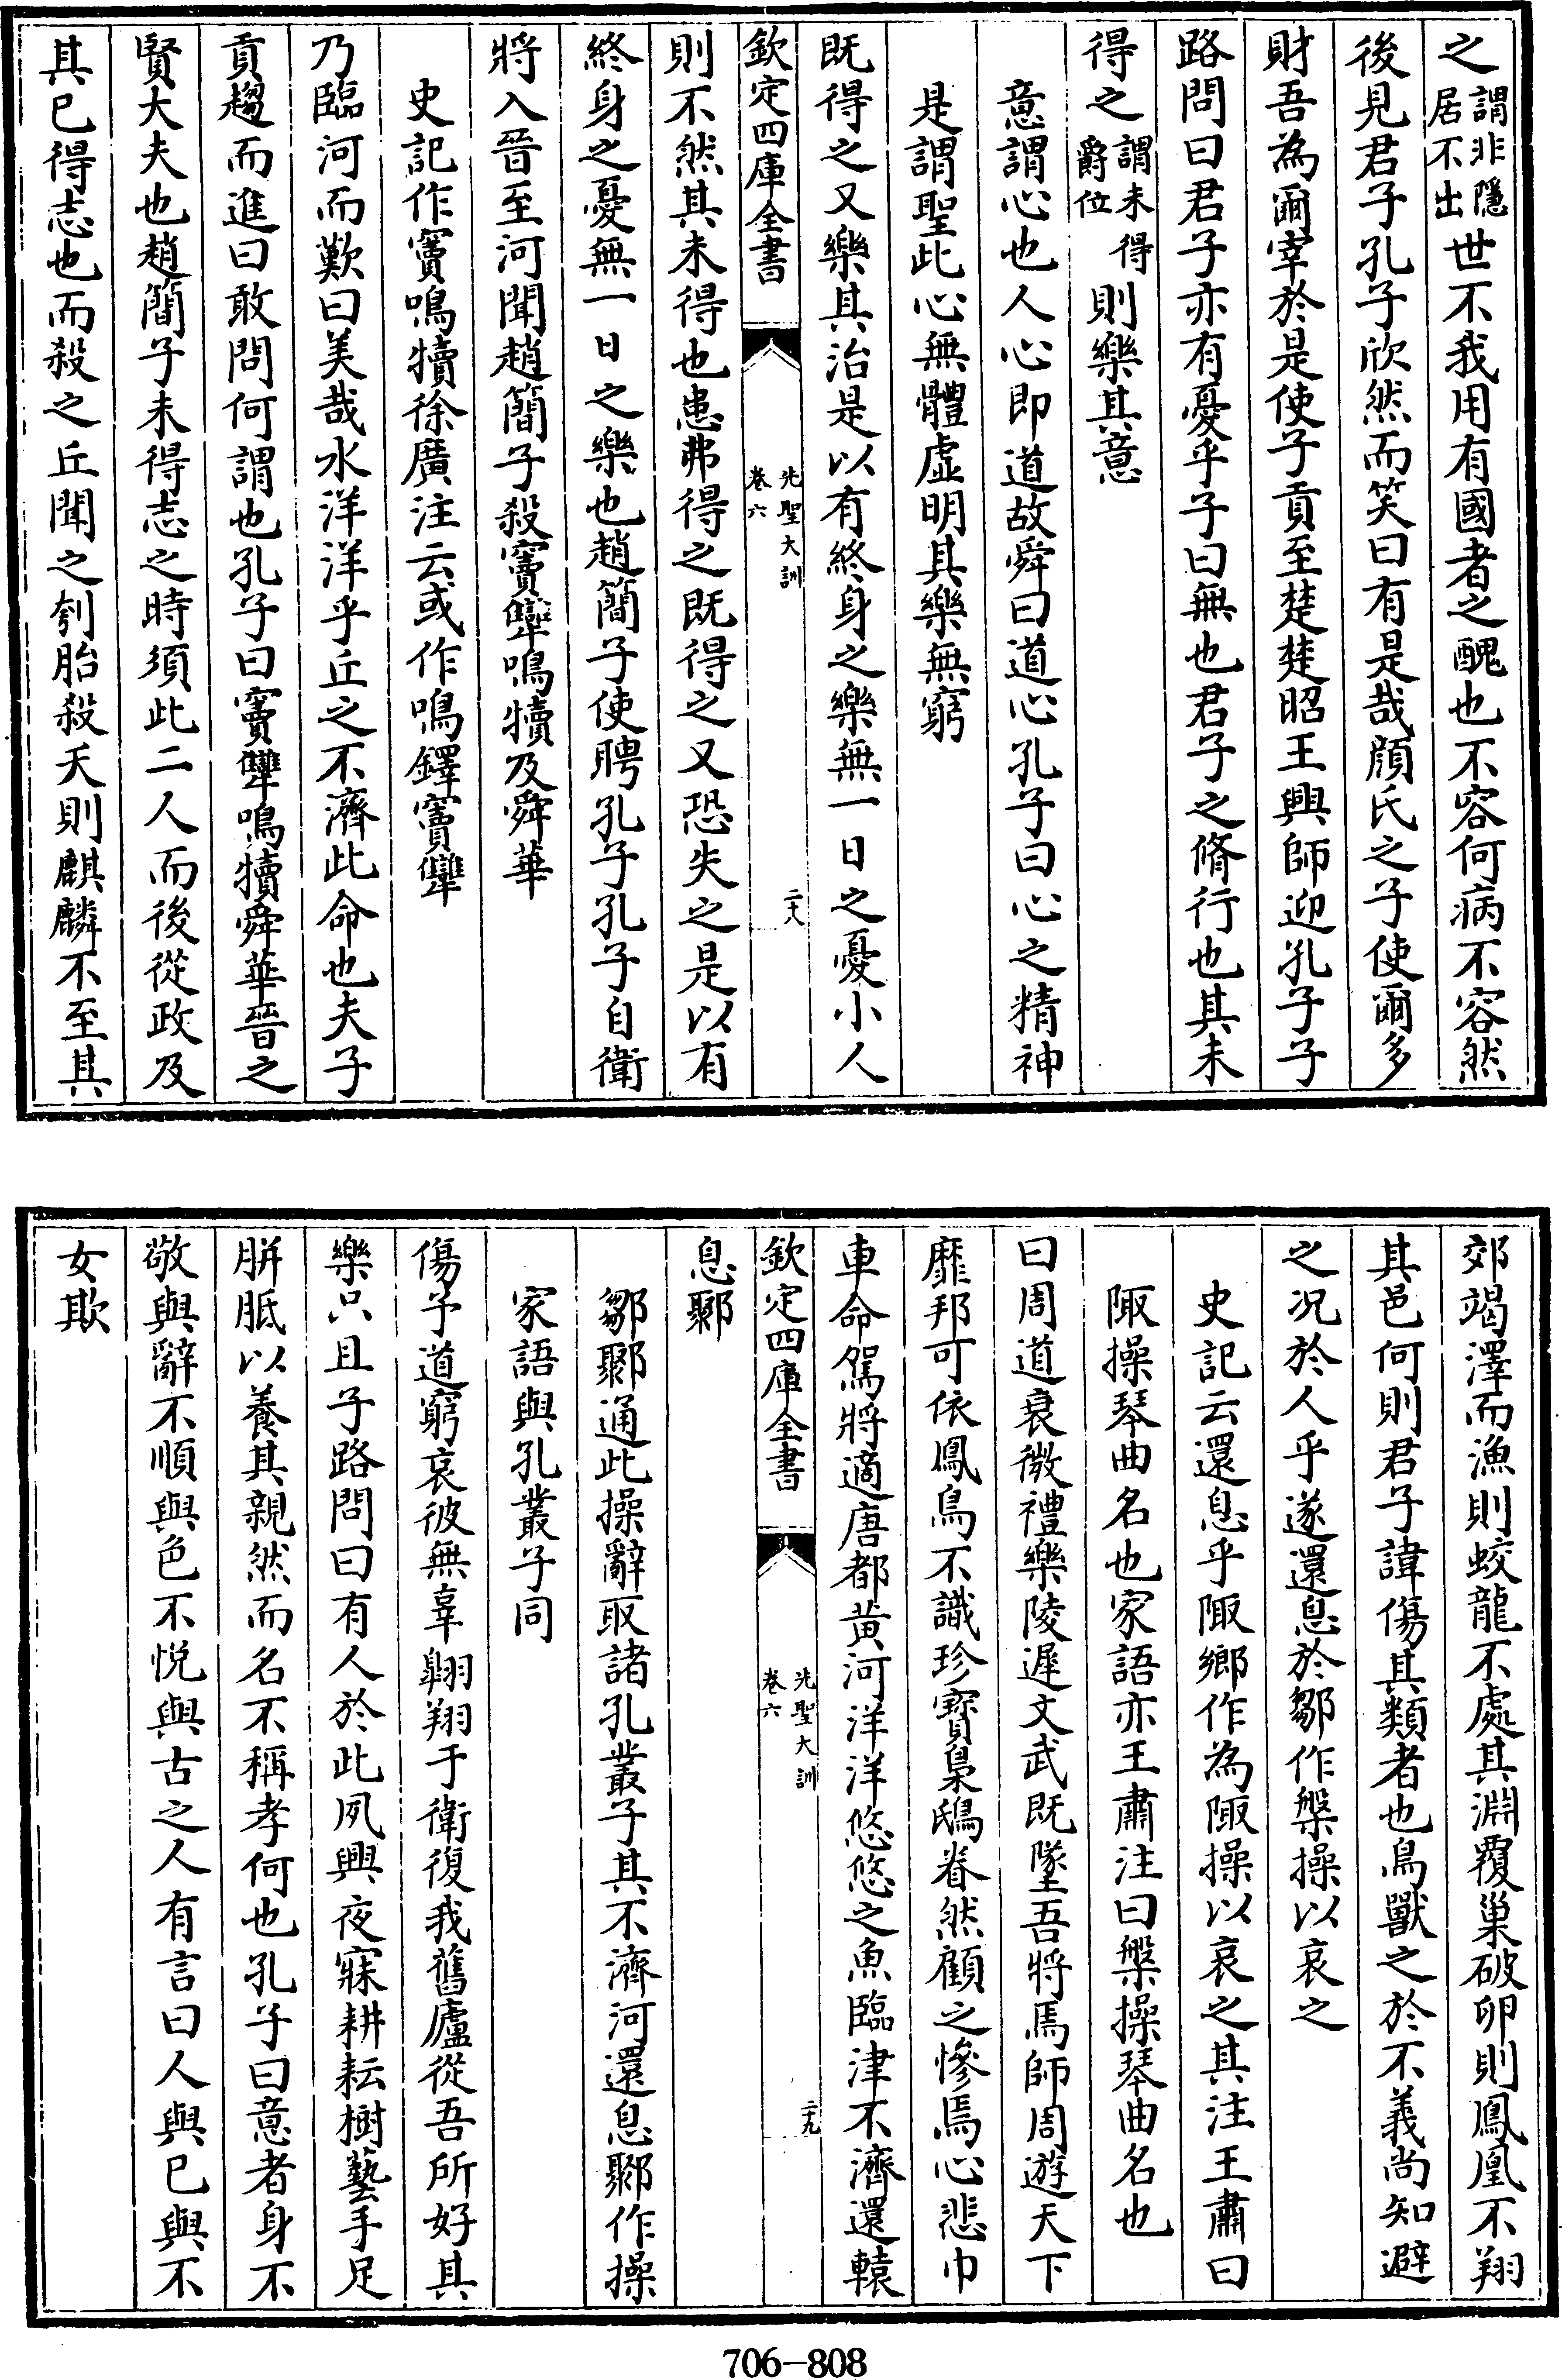 之謂非隱居不出世不我用有國者之醜也不容何病不容然
後見君子孔子欣然而笑曰有是哉顔氏之子使爾多
財吾為爾宰於是使子貢至楚楚昭王興師迎孔子子
路問曰君子亦有憂乎子曰無也君子之脩行也其未
得之謂未得爵位則樂其意
意謂心也人心即道故舜曰道心孔子曰心之精神
是謂聖此心無體虛明其樂無窮
既得之又樂其治是以有終身之樂無一日之憂小人
欽定四庫全書
先聖大訓
卷六
二十八
則不然其未得也患弗得之既得之又恐失之是以有
終身之憂無一日之樂也趙簡子使聘孔子孔子自衛
將入晉至河聞趙簡子殺竇犨鳴犢及舜華
史記作竇鳴犢徐廣注云或作鳴鐸竇犨
乃臨河而歎曰美哉水洋洋乎丘之不濟此命也夫子
貢趨而進曰敢問何謂也孔子曰竇犨鳴犢舜華晉之
賢大夫也趙簡子未得志之時須此二人而後從政及
其已得志也而殺之丘聞之刳胎殺夭則麒麟不至其
郊竭澤而漁則蛟龍不處其淵覆巢破卵則鳳凰不翔
其邑何則君子諱傷其類者也鳥獸之於不義尚知避
之况於人乎遂還息於鄒作槃操以哀之
史記云還息乎陬鄉作為陬操以哀之其注王肅曰
陬操琴曲名也家語亦王肅注曰槃操琴曲名也
曰周道衰微禮樂陵遲文武既墜吾將焉師周遊天下
靡邦可依鳳鳥不識珍寶梟鴟眷然顧之慘焉心悲巾
車命駕將適唐都黄河洋洋悠悠之魚臨津不濟還轅
欽定四庫全書
先聖大訓
卷六
二十九
息鄹
鄒鄹通此操辭取諸孔叢子其不濟河還息鄹作操
家語與孔叢子同
傷予道窮哀彼無辜翺翔于衛復我舊廬從吾所好其
樂只且子路問曰有人於此夙興夜寐耕耘樹藝手足
胼胝以養其親然而名不稱孝何也孔子曰意者身不
敬與辭不順與色不悅與古之人有言曰人與已與不
女欺
706-808